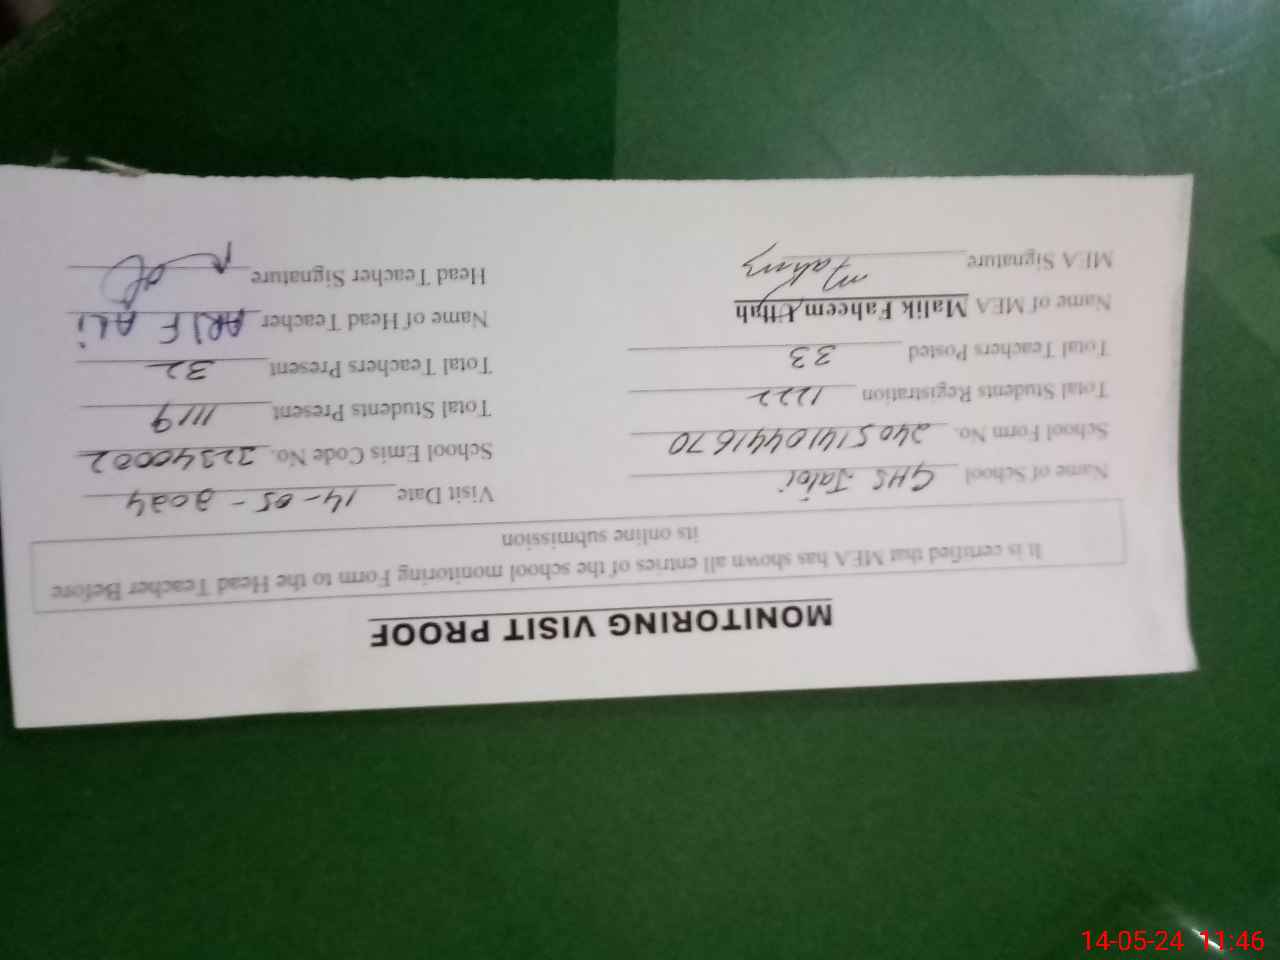 MONITORING VISIT PROOF
It is certified that MEA has shown all entries of the school monitoring Form to the Head Teacher Before
its online submission
Name of School GHS Jaboi Visit Date 14-05-2024
School Form No. 24051410441670 School Emis Code No.
Total Students Registration 1222 Total Students Present 1119
Total Teachers Posted 33 Total Teachers Present 32
Name of MEA Malik Faheem Ullah Name of Head Teacher ARIF ALi
MEA Signature Head Teacher Signature
14-05-24 11:46